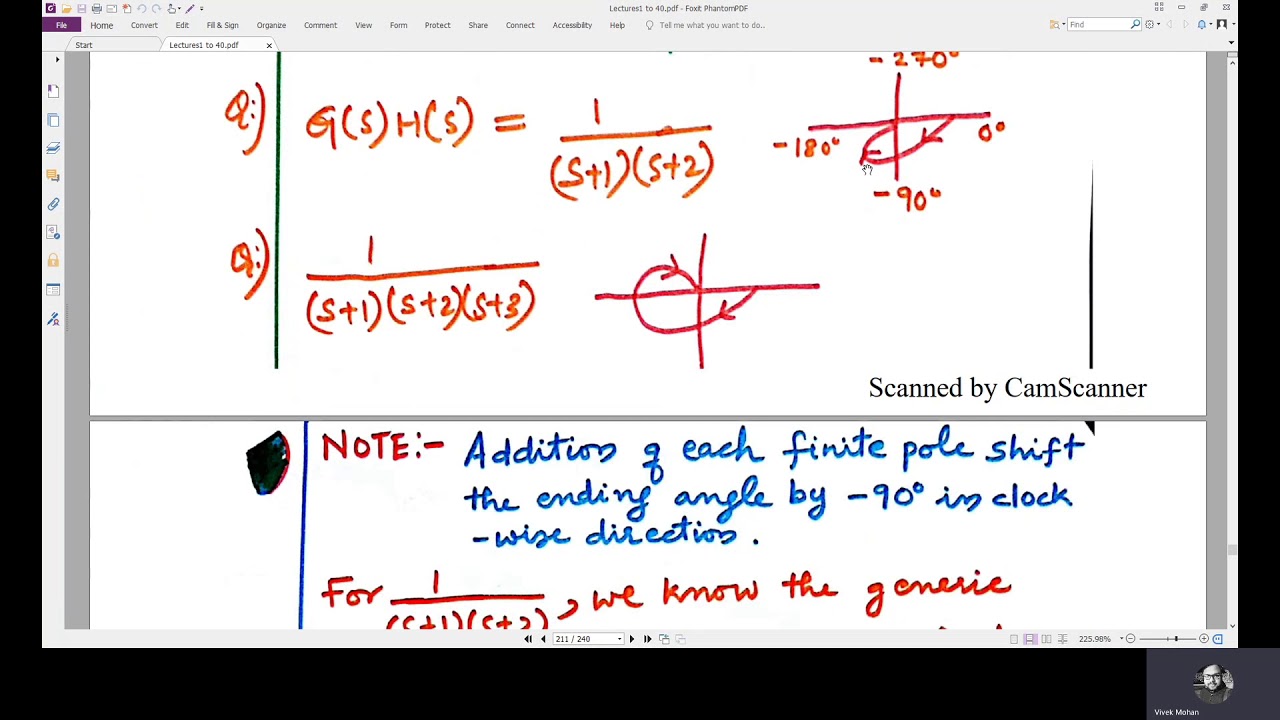 Lectures1 to 40.pdf - Foxit PhantomPDF
File Home Convert Edit Fill & Sign Organize Comment View Form Protect Share Connect Accessibility Help Tell me what you want to do... Find
Start Lectures1 to 40.pdf ×
-270°
Q:) G(s)H(s) = 1
(s+1)(s+2)
-180° 0°
-90°
Q:) 1
(s+1)(s+2)(s+3)
Scanned by CamScanner
NOTE:- Addition of each finite pole shift
the ending angle by -90° in clock
-wise direction.
For 1 , we know the generic
(s+1)(s+2)
211 / 240 225.98%
Vivek Mohan